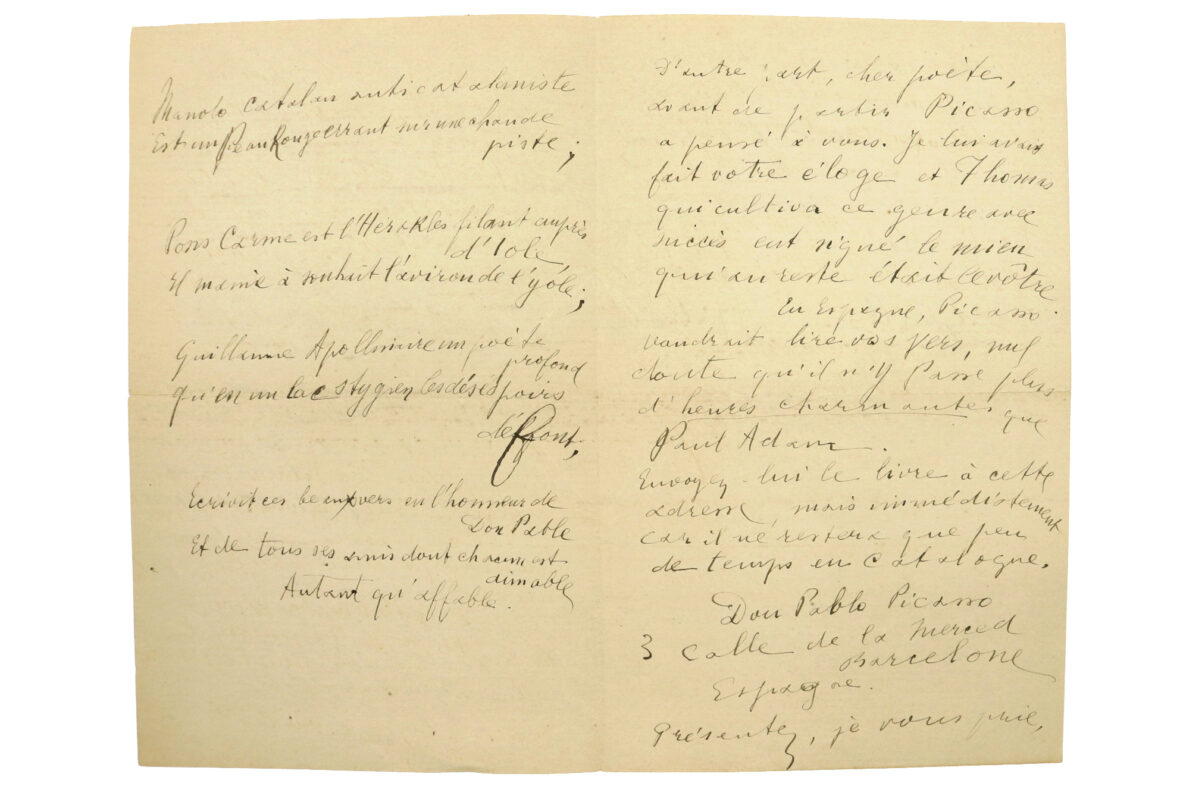 Manolo Catalan anticatalaniste
Est un Peau Rouge errant sur une chaude
piste;
Pons Carme est l'Hérakles filant auprès
d'Iole
Il manie à souhait l'aviron de l'yole;
Guillaume Apollinaire un poète
profond
Qu'en un lac stygien les désespoirs
défont,
Ecrivit ces beaux vers en l'honneur de
Don Pable
Et de tous ses amis dont chacun est
aimable
Autant qu'affable.
D'autre part, cher poète,
avant de partir Picasso
a pensé à vous. Je lui avais
fait votre éloge et Thomas
qui cultiva ce genre avec
succès eut signé le mien
qui au reste était le vôtre
En Espagne, Picasso
voudrait lire vos vers, nul
doute qu'il n'y Passe plus
d'heures charmantes que
Paul Adam.
Envoyez-lui le livre à cette
adresse, mais immédiatement
car il ne restera que peu
de temps en Catalogne.
Don Pablo Picasso
3 Calle de la Merced
Barcelone
Espagne.
Présentez, je vous prie,